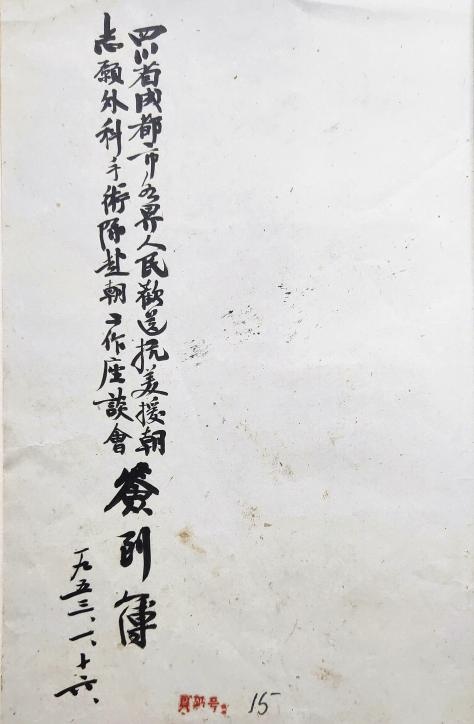 四川省成都市各界人民歡送抗美援朝
志願外科手術隊赴朝工作座談會
簽到簿
一九五三、一、十六、
号 15